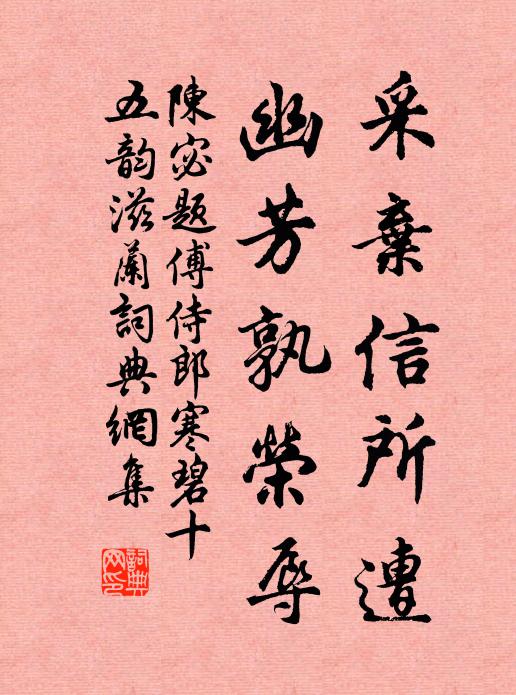 采棄信所遭
幽芳孰榮辱
陳宓題傅侍郎寒碧十
五韵滋蘭詞典網集
詞典网印